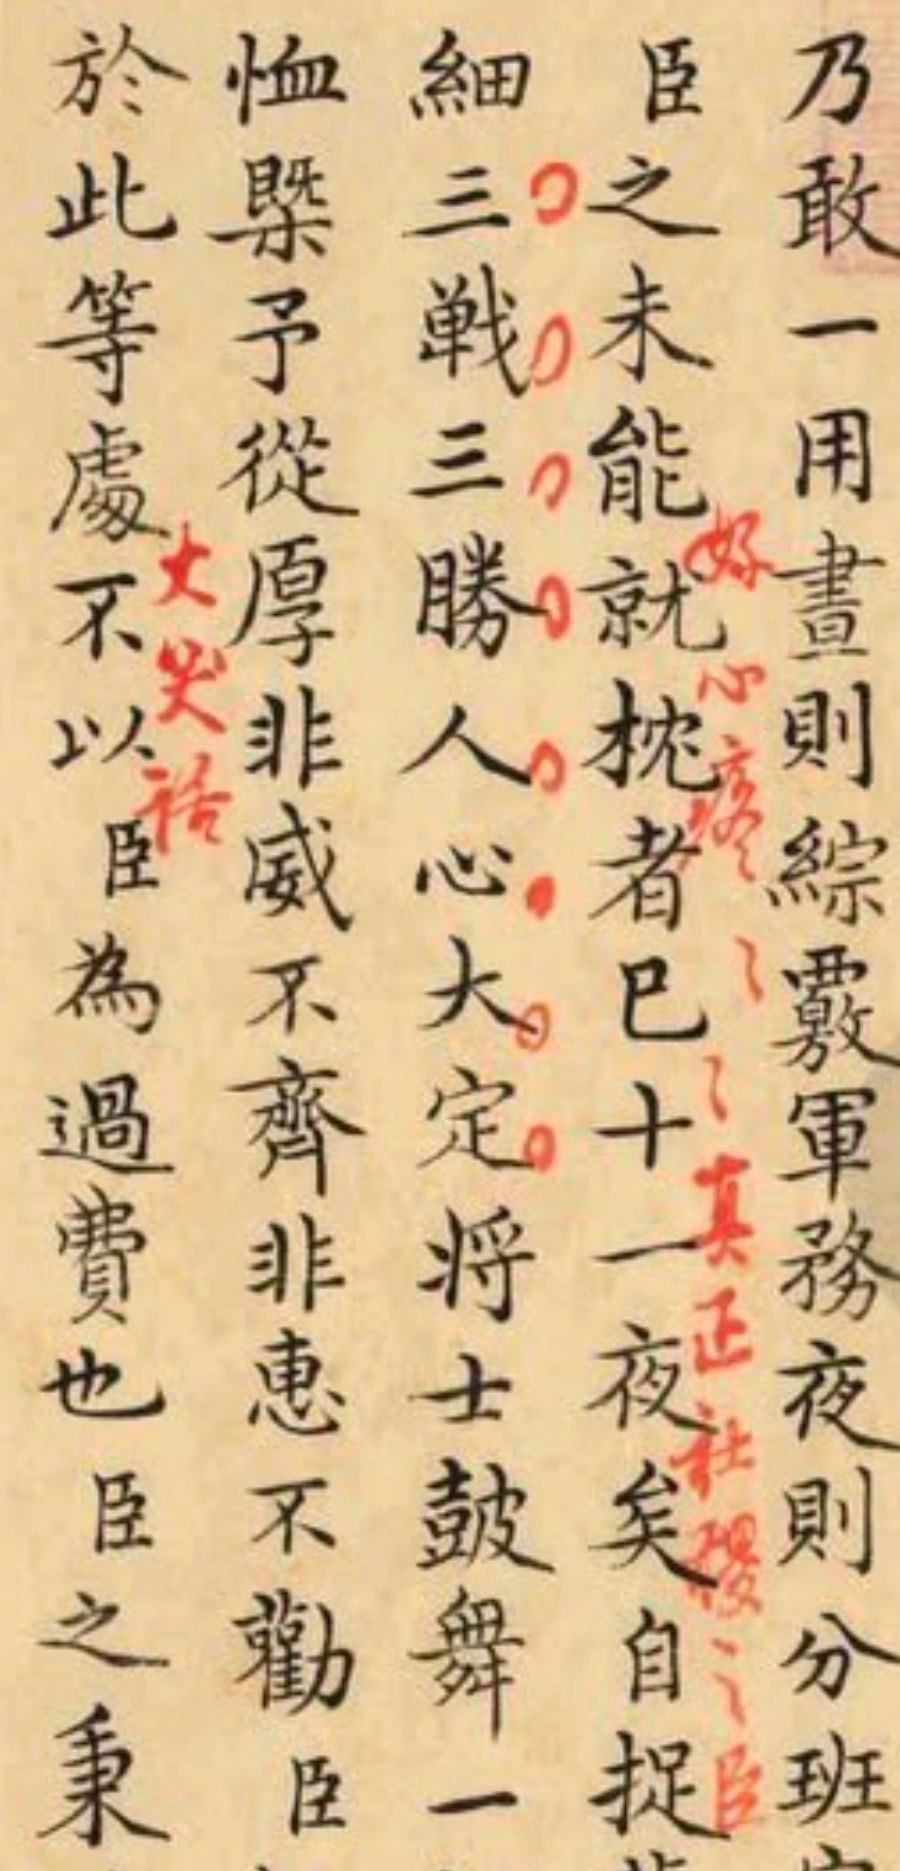 乃敢一用晝則綜覈軍務夜則分班
好心疼〻〻真正社稷之臣
臣之未能就枕者已十一夜矣自捉
細三戦三勝人心大定将士鼓舞一
恤槩予從厚非威不齊非惠不勸臣
大笑話
於此等處不以臣為過費也臣之秉